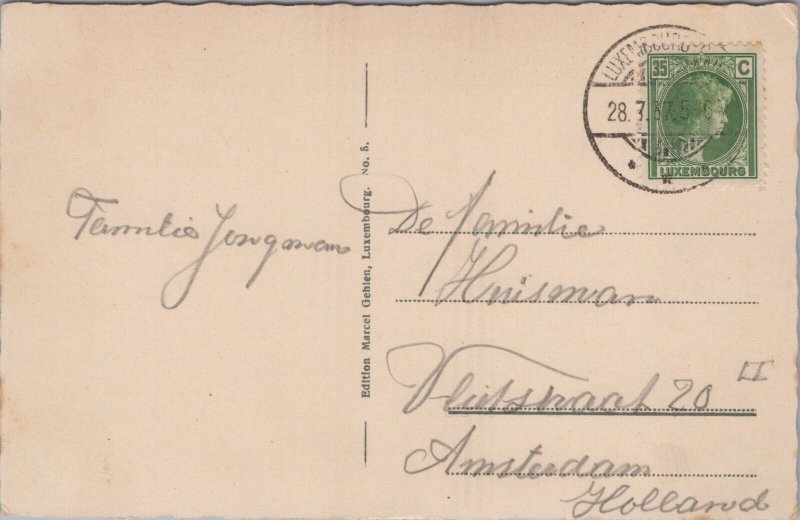 Familie Jongman
Edition Marcel Gehlen, Luxembourg. No. 5.
LUXEMBOURG
28.7.37.5-6
35 C
LUXEMBOURG
De familie
Huisman
Vlietstraat 20 II
Amsterdam
Holland